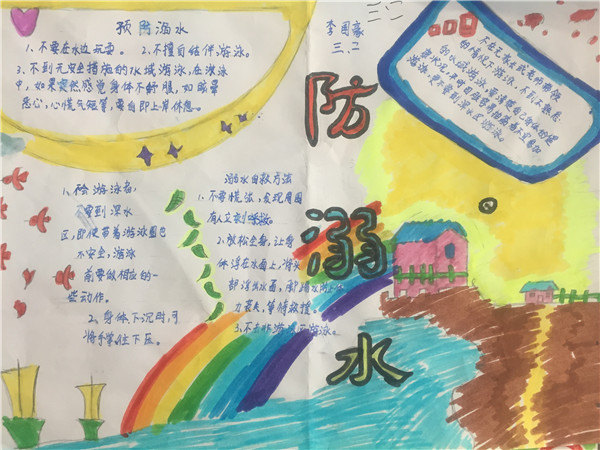 预防溺水
1、不要在水边玩耍。 2、不擅自结伴游泳。
3、不到无安全措施的水域游泳,在游泳
中,如果突然感觉身体不舒服,如眩晕
恶心,心慌气短等,要自即上岸休息。
李国豪
三、二
防
溺
水
1、不会游泳者,
要到深水
区,即使带着游泳圈也
不安全,游泳
前要做相应的一
些动作。
2、身体下沉时,可
将手掌往下压。
溺水自救方法
1、不要慌张,发现周围
有人立刻呼救。
2、放松全身,让身
体浮在水面上,将头
部浮出水面,
力丧失,等待救援。
3、不去非游泳区游泳。
不在无家长或老师带领
的情况下游泳,不到不熟悉
的水域游泳,要清楚自己身体的健
康状况,平时四肢容易抽筋者不宜参加
游泳,更不要到深水区游泳。